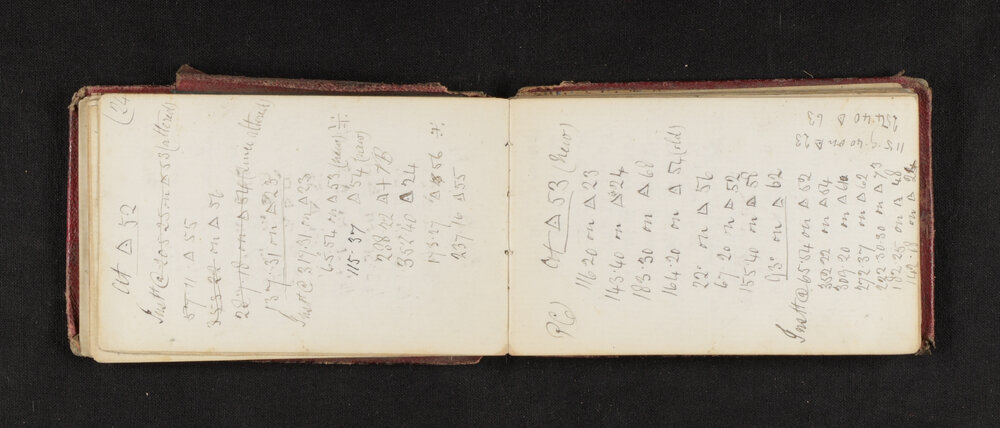 (24
At △ 52
Inst @ 205·25 on △ 53 (altered)
57·11 · △ 55
353·22 on △ 56
on △ 54 (since altered)
137·31 on △ 23
Inst @ 317·31 on △ 23
65·54 on △ 53 (new)
115·37 △ 54 (new)
238·22 △ + 7B
332·40 △ 24
173·27 △ 56
237·16 △ 55
At △ 53 (New)
116·20 on △ 23
143·40 on △ 24
183·30 on △ 68
164·20 on △ 54 (old)
22· on △ 56
67·20 on △ 52
155·40 on △ 58
93· on △ 62
Inst @ 65·54 on △ 52
352·22 on △ 54
309·20 on △ 61
272·37 on △ 62
222·30·30 on △ 73
182·25 on △ 48
142·18 on △ 24
115·9·40 on △ 23
254·40 △ 63